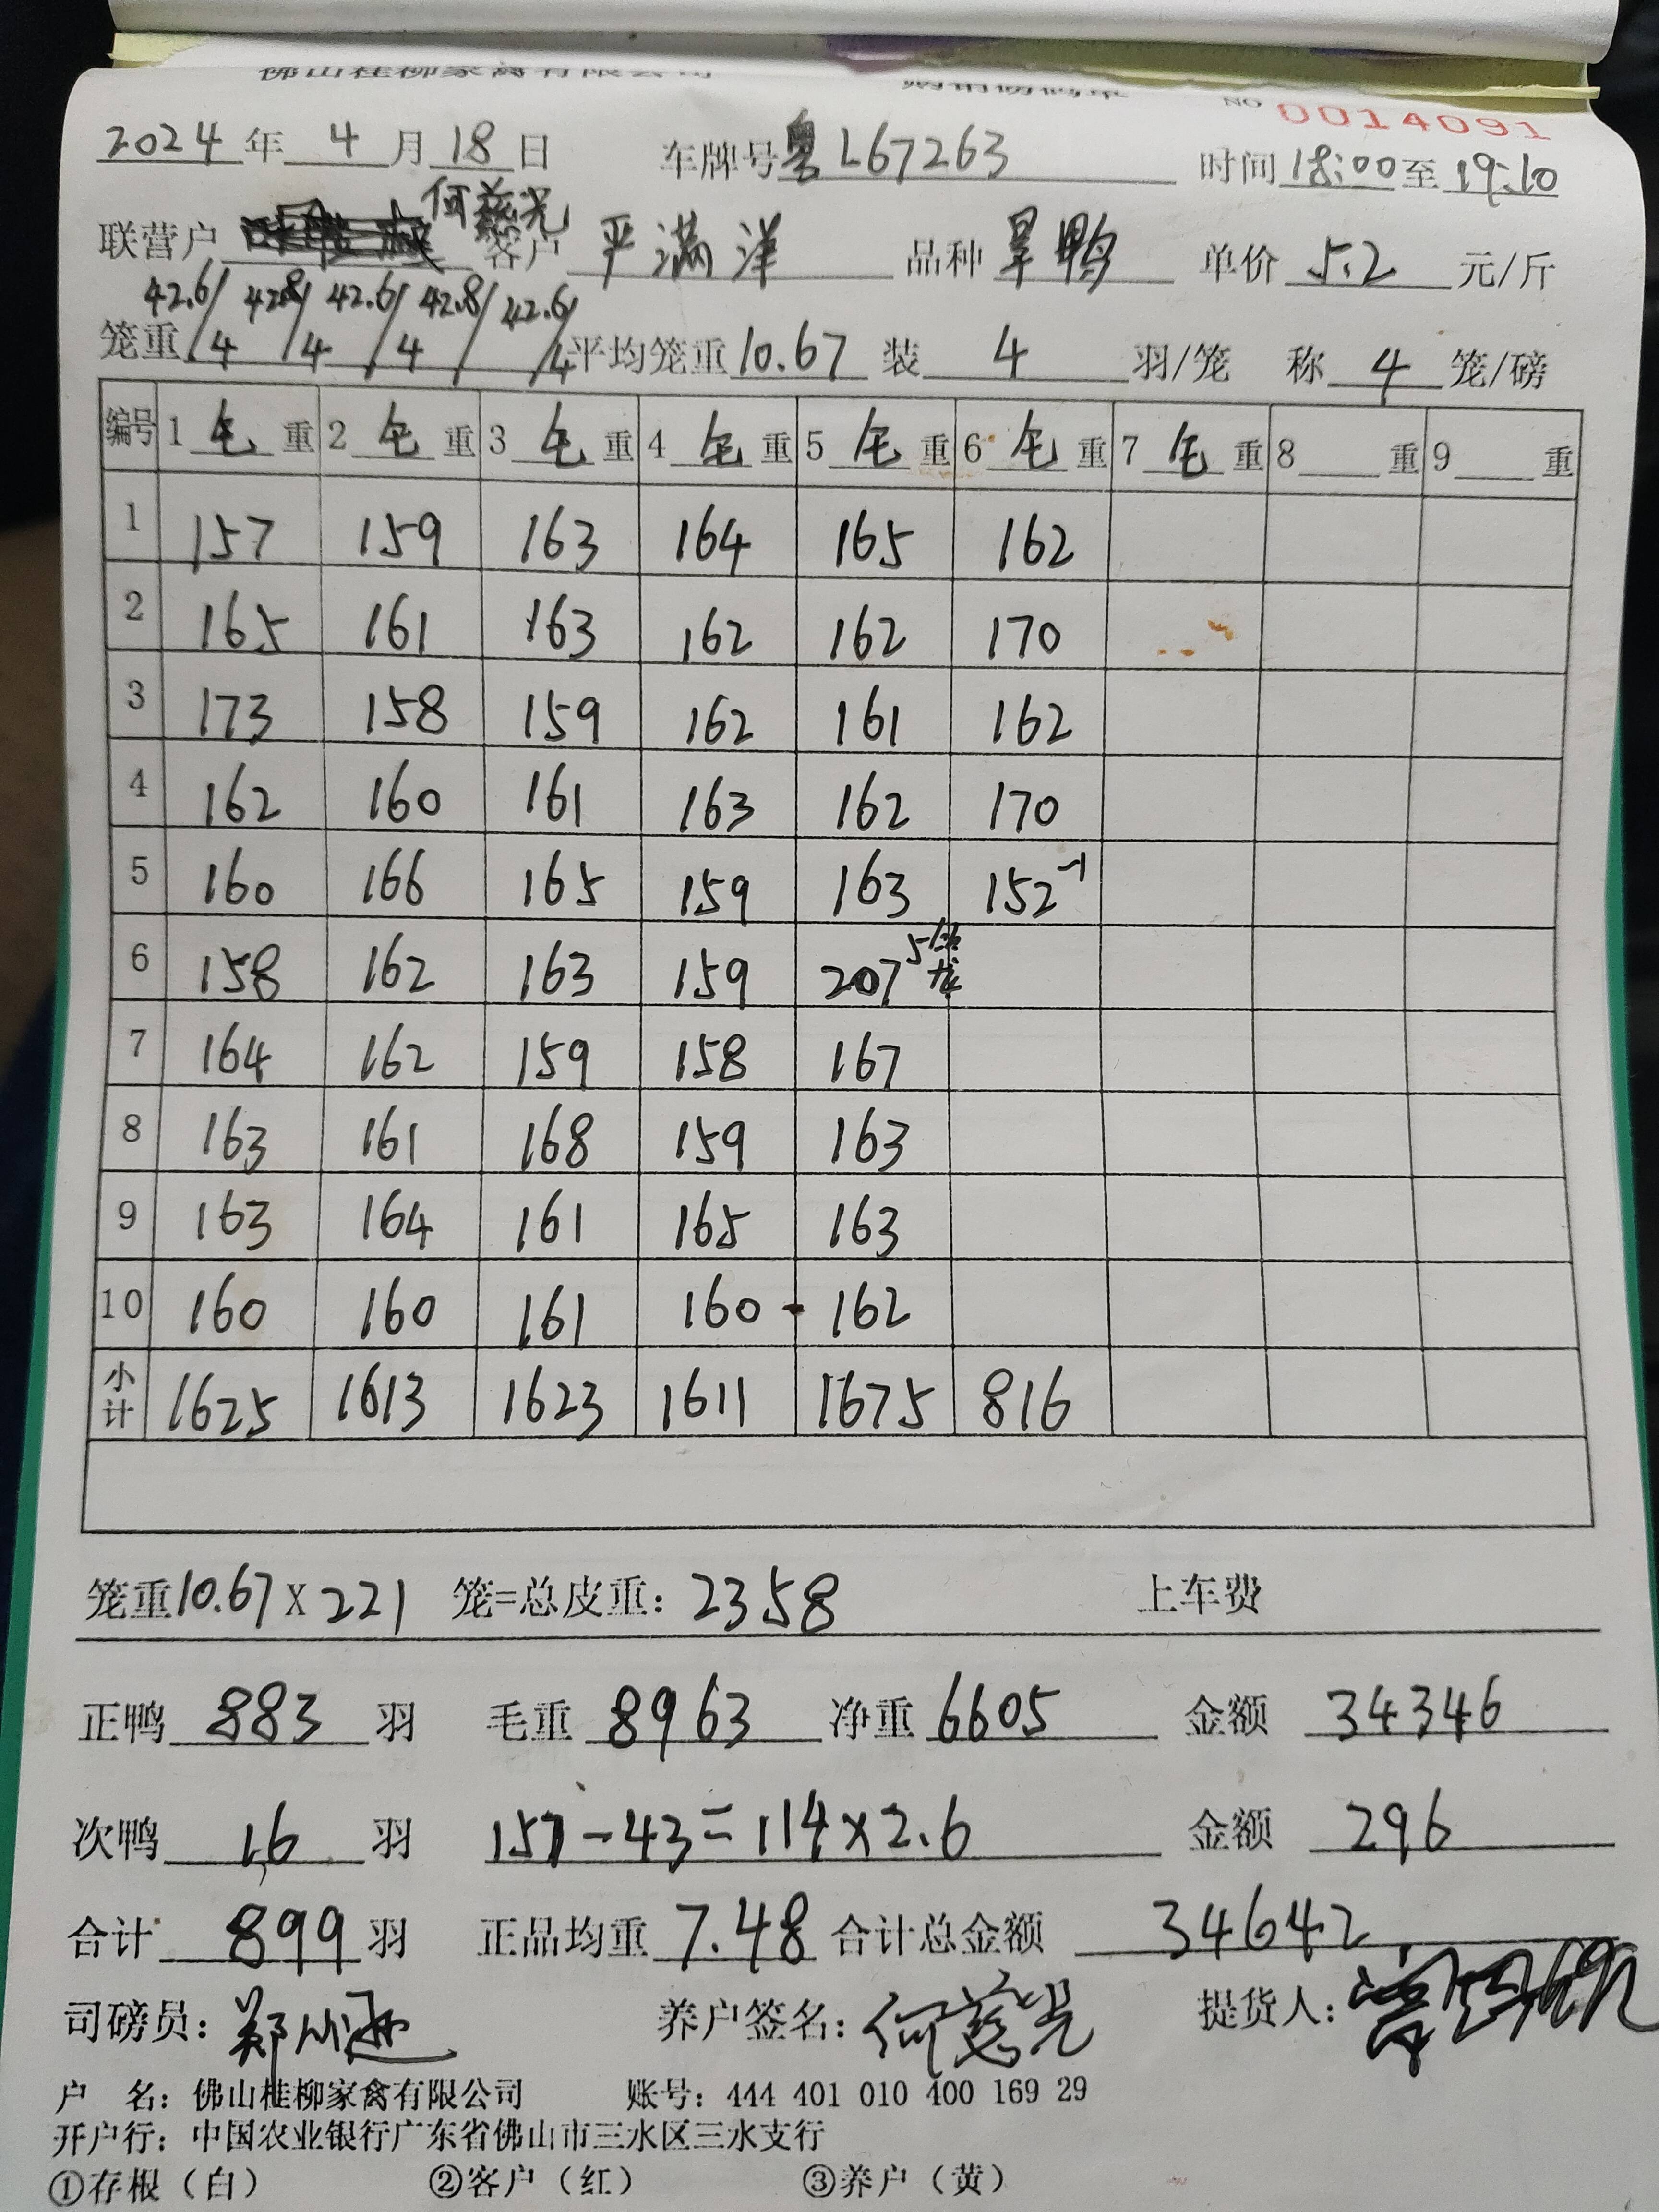 佛山桂柳家禽有限公司 NO 0014091
2024年4月18日 车牌号粤L67263 时间18:00至19:10
何慈光
联营户 客户 严满洋 品种 旱鸭 单价 5.2 元/斤
42.6/4 42.8/4 42.6/4 42.8/ 42.6/4
笼重 平均笼重10.67 装 4 羽/笼 称 4 笼/磅
编号 1毛重 2毛重 3毛重 4毛重 5毛重 6毛重 7毛重 8重 9重
1 157 159 163 164 165 162
2 165 161 163 162 162 170
3 173 158 159 162 161 162
4 162 160 161 163 162 170
5 160 166 165 159 163 152-1
6 158 162 163 159 207 5
7 164 162 159 158 167
8 163 161 168 159 163
9 163 164 161 165 163
10 160 160 161 160 - 162
小计 1625 1613 1623 1611 1675 816
笼重10.67X221 笼=总皮重：2358 上车费
正鸭 883 羽 毛重 8963 净重 6605 金额 34346
次鸭 16 羽 157-43=114×2.6 金额 296
合计 899 羽 正品均重 7.48 合计总金额 34642
司磅员： 养户签名：何慈光 提货人：
户 名：佛山桂柳家禽有限公司 账号：444 401 010 400 169 29
开户行：中国农业银行广东省佛山市三水区三水支行
①存根（白） ②客户（红） ③养户（黄）